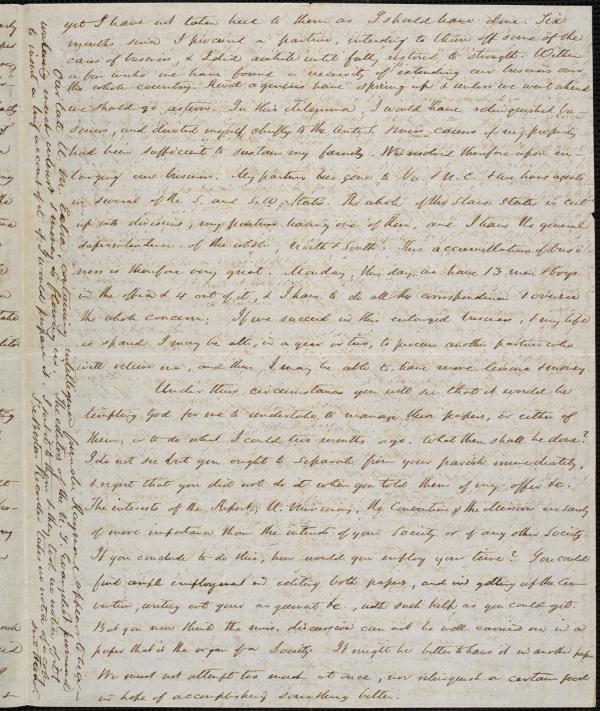 yet I have not taken hold to them as I should have done. Six
months since I procured a partner, intending to throw off some of the
cares of business, & I did awhile until fully restored to strength. Within
a few weeks we have found a necessity of extending our business over
the whole country. Rival agencies have sprung up & unless we went ahead
we should go astern. In this dilemma, I would have relinquished bu-
siness, and devoted myself chiefly to the anti S. causes if my property
had been sufficient to sustain my family. We resolved therefore upon en-
larging our business. My partner has gone to Va. & N.C. & we have agents
in several of the S. and S.W. States. The whole of the Slave States is cut
up into divisions, my partner having one of them, and I have the general
superintendence of the whole North & South. This accumulation of busi
ness is therefore very great. Monday, this day, we have 13 men & boys
in the office & 4 out of it, & I have to do all the correspondence & oversee
the whole concern. If we succeed in this enlarged business, & my life
is spared I may be able, in a year or two, to procure another partner who
will relieve me, and then I may be able to have more leisure
Under these circumstances you will see that it would be
tempting God for me to undertake to manage these papers, or either of
them, or to do what I could two months ago. What then shall be done?
I do not see but you ought to separate from your parish immediately,
& regret that you did not do it when you told them of my offer &c.
The interests of the Report, U. Missionary, the Convention & the discussion are surely
of more importance than the interests of your Society or of any other Society.
If you conclude to do this, how would you employ your time? You could
find ample employment in editing both papers, and in getting up the Con-
vention, writing out your argument &c., with such help as you could get.
But you now think the miss. discussion can not be well carried on in a
paper that is the organ of a Society. It might be better to have it in another paper
We must not attempt too much at once, nor relinquish a certain good
in hope of accomplishing something better.
Our late U. M. Extra, containing intelligence from Mr. Raymond appears to be a-
wakening much interest
to insert a long account of it if I would prepare it. I sent it to them & they
The editors of the N. Y. Evangelist promised
The Boston Recorder